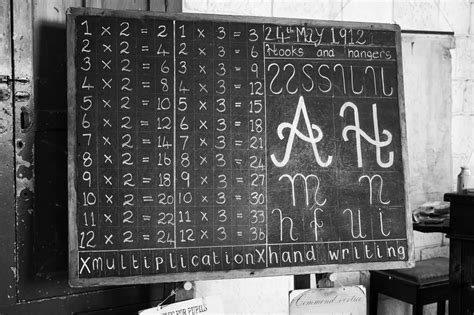 1 × 2 = 2
2 × 2 = 4
3 × 2 = 6
4 × 2 = 8
5 × 2 = 10
6 × 2 = 12
7 × 2 = 14
8 × 2 = 16
9 × 2 = 18
10 × 2 = 20
11 × 2 = 22
12 × 2 = 24
1 × 3 = 3
2 × 3 = 6
3 × 3 = 9
4 × 3 = 12
5 × 3 = 15
6 × 3 = 18
7 × 3 = 21
8 × 3 = 24
9 × 3 = 27
10 × 3 = 30
11 × 3 = 33
12 × 3 = 36
24th MAY 1912
Hooks and hangers
A H
m n
h f u i
×multiplication×hand writing
FOR PUPILS